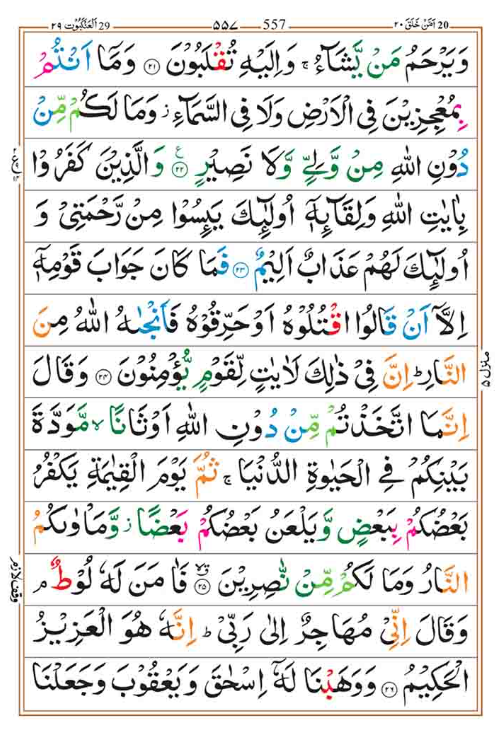 اَمَّنْ خَلَقَ ٢٠ 20 557 ٥٥٧ اَلْعَنْكَبُوْت ٢٩ 29
وَيَرْحَمُ مَنْ يَّشَآءُ ۚ وَاِلَيْهِ تُقْلَبُوْنَ ۝٢١ وَمَآ اَنْتُمْ
بِمُعْجِزِيْنَ فِى الْاَرْضِ وَلَا فِى السَّمَآءِ ۚ وَمَا لَكُمْ مِّنْ
دُوْنِ اللّٰهِ مِنْ وَّلِىٍّ وَّلَا نَصِيْرٍ ۝٢٢ ع وَالَّذِيْنَ كَفَرُوْا
بِاٰيٰتِ اللّٰهِ وَلِقَآئِهٖٓ اُولٰٓئِكَ يَئِسُوْا مِنْ رَّحْمَتِىْ وَ
اُولٰٓئِكَ لَهُمْ عَذَابٌ اَلِيْمٌ ۝٢٣ فَمَا كَانَ جَوَابَ قَوْمِهٖٓ
اِلَّآ اَنْ قَالُوا اقْتُلُوْهُ اَوْ حَرِّقُوْهُ فَاَنْجٰىهُ اللّٰهُ مِنَ
النَّارِ ؕ اِنَّ فِىْ ذٰلِكَ لَاٰيٰتٍ لِّقَوْمٍ يُّؤْمِنُوْنَ ۝٢٤ وَقَالَ
اِنَّمَا اتَّخَذْتُمْ مِّنْ دُوْنِ اللّٰهِ اَوْثَانًا ۙ مَّوَدَّةَ
بَيْنِكُمْ فِى الْحَيٰوةِ الدُّنْيَا ۚ ثُمَّ يَوْمَ الْقِيٰمَةِ يَكْفُرُ
بَعْضُكُمْ بِبَعْضٍ وَّيَلْعَنُ بَعْضُكُمْ بَعْضًا ۚ وَّمَاْوٰىكُمُ
النَّارُ وَمَا لَكُمْ مِّنْ نّٰصِرِيْنَ ۝٢٥ فَاٰمَنَ لَهٗ لُوْطٌ ۘ
وَقَالَ اِنِّىْ مُهَاجِرٌ اِلٰى رَبِّىْ ؕ اِنَّهٗ هُوَ الْعَزِيْزُ
الْحَكِيْمُ ۝٢٦ وَوَهَبْنَا لَهٗٓ اِسْحٰقَ وَيَعْقُوْبَ وَجَعَلْنَا
منزل ٥
وقف لازم